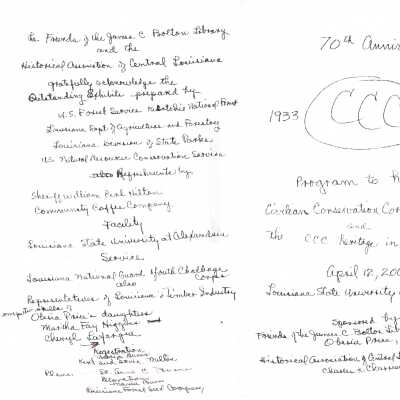 The Friends of the James C Bolton Library
and the
Historical Association of Central Louisiana
gratefully acknowledge the
Outstanding Exhibits prepared by
U.S. Forest Service Kisatchie National Forest
Louisiana Dept. of Agriculture and Forestry
Louisiana Division of State Parks
U.S. Natural Resource Conservation Service
also Refreshments by
Sheriff William Earl Hilton
Community Coffee Company
Facility
Louisiana State University at Alexandria
Service
Louisiana National Guard Youth Challenge
also
Representatives of Louisiana's Timber Industry
Computer skills of
Obena Price's daughters
Martha Fay Higgins
Cheryl LaFargue
Registration
Decorations
Louisiana Forest Seed Company
70th Anni
1933
CCC
Program to
Civilian Conservation Cor
and
The CCC Heritage in
April 12, 200
Louisiana State University
Sponsored by
Friends of the James C Bolton Lib
Price,
Historical Association of Central L
Charles